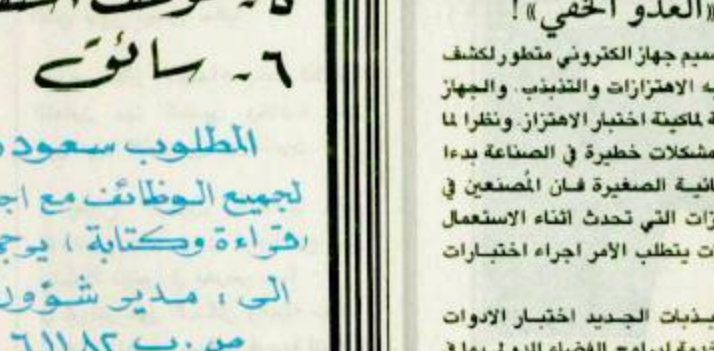 «العدو الخفي»!
سميم جهاز الكتروني متطور لكشف
به الاهتزازات والتذبذب. والجهاز
ة لماكينة اختبار الاهتزاز. ونظرا لما
مشكلات خطيرة في الصناعة بدءا
انية الصغيرة فان المصنعين في
زات التي تحدث اثناء الاستعمال
ت يتطلب الامر اجراء اختبارات
بذبات الجديد اختبار الادوات
٦- سائق
المطلوب سعود
لجميع الوظائف مع اج
(قراءة وكتابة) يرج
الى: مدير شؤون
ص.ب ٦١١٨٢